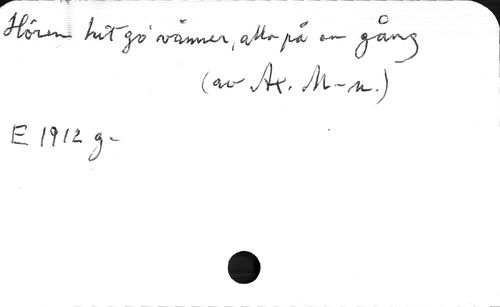 Hören hit go' vänner, alla på en gång
(av Ax. M-n.)
E 1912 g-